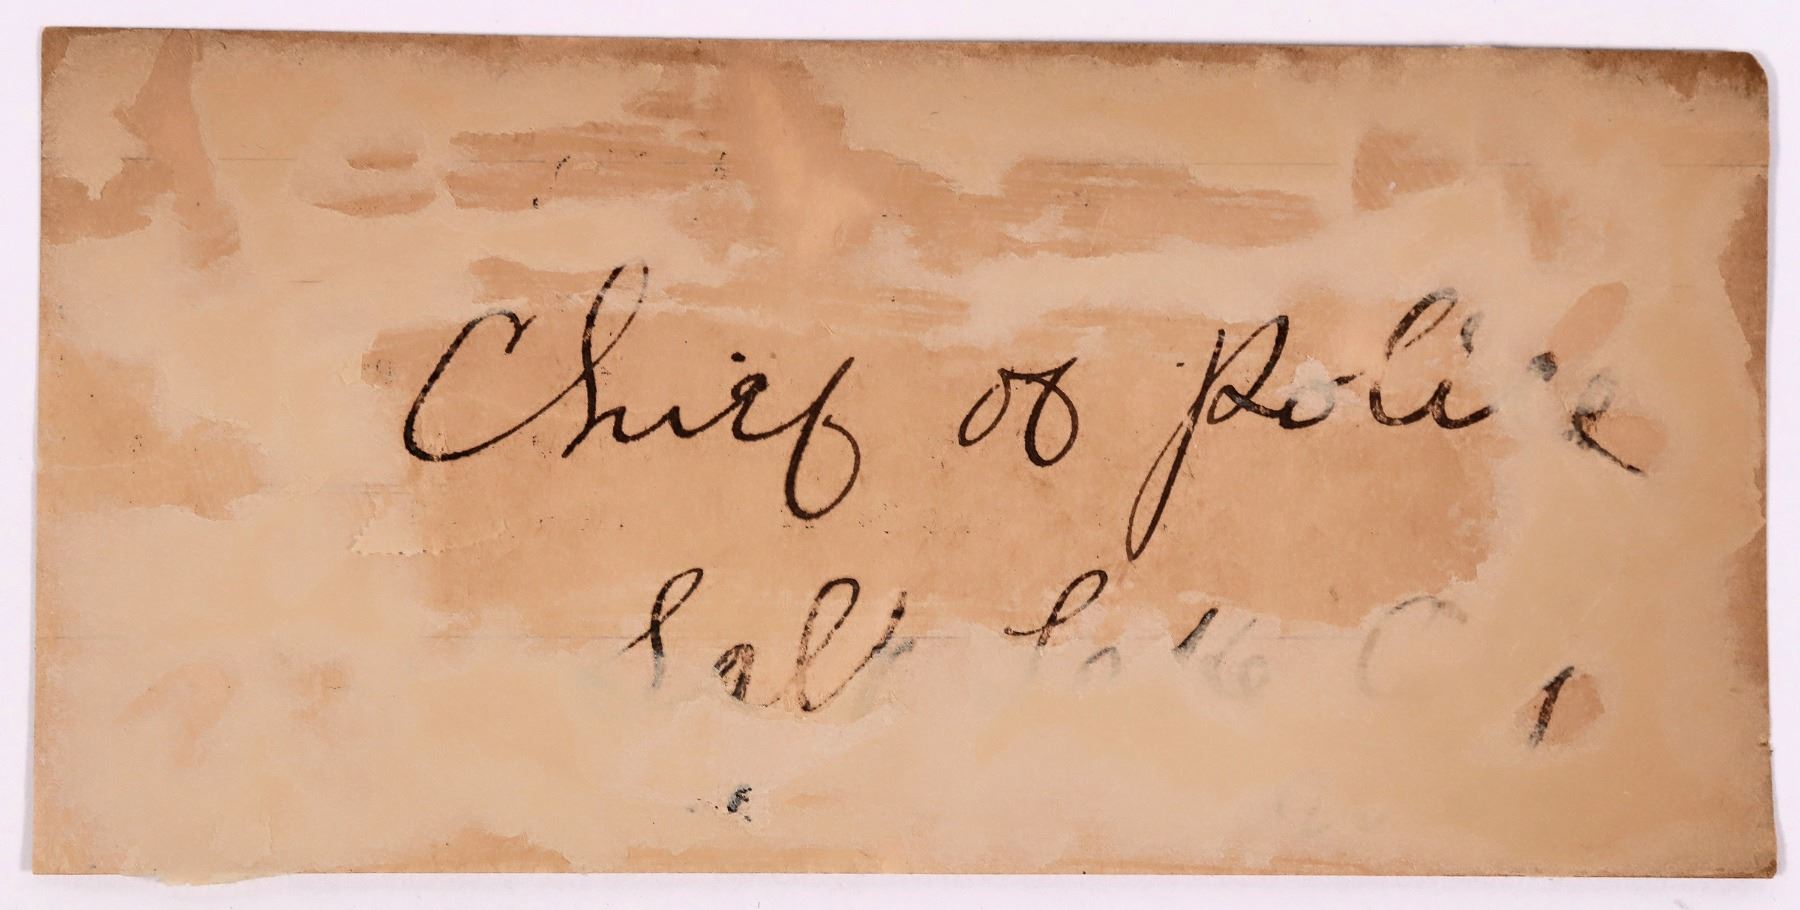 Chief of Police
Salt Lake C